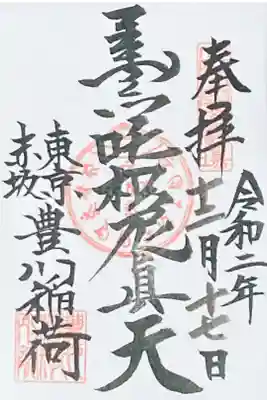 奉拝
令和二年
十二月十七日
豊川
吒枳尼真天
東京
赤坂
豊川稲荷